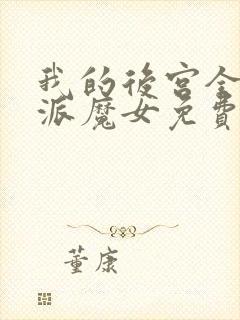 我的後宮全
派魔女免費
董康